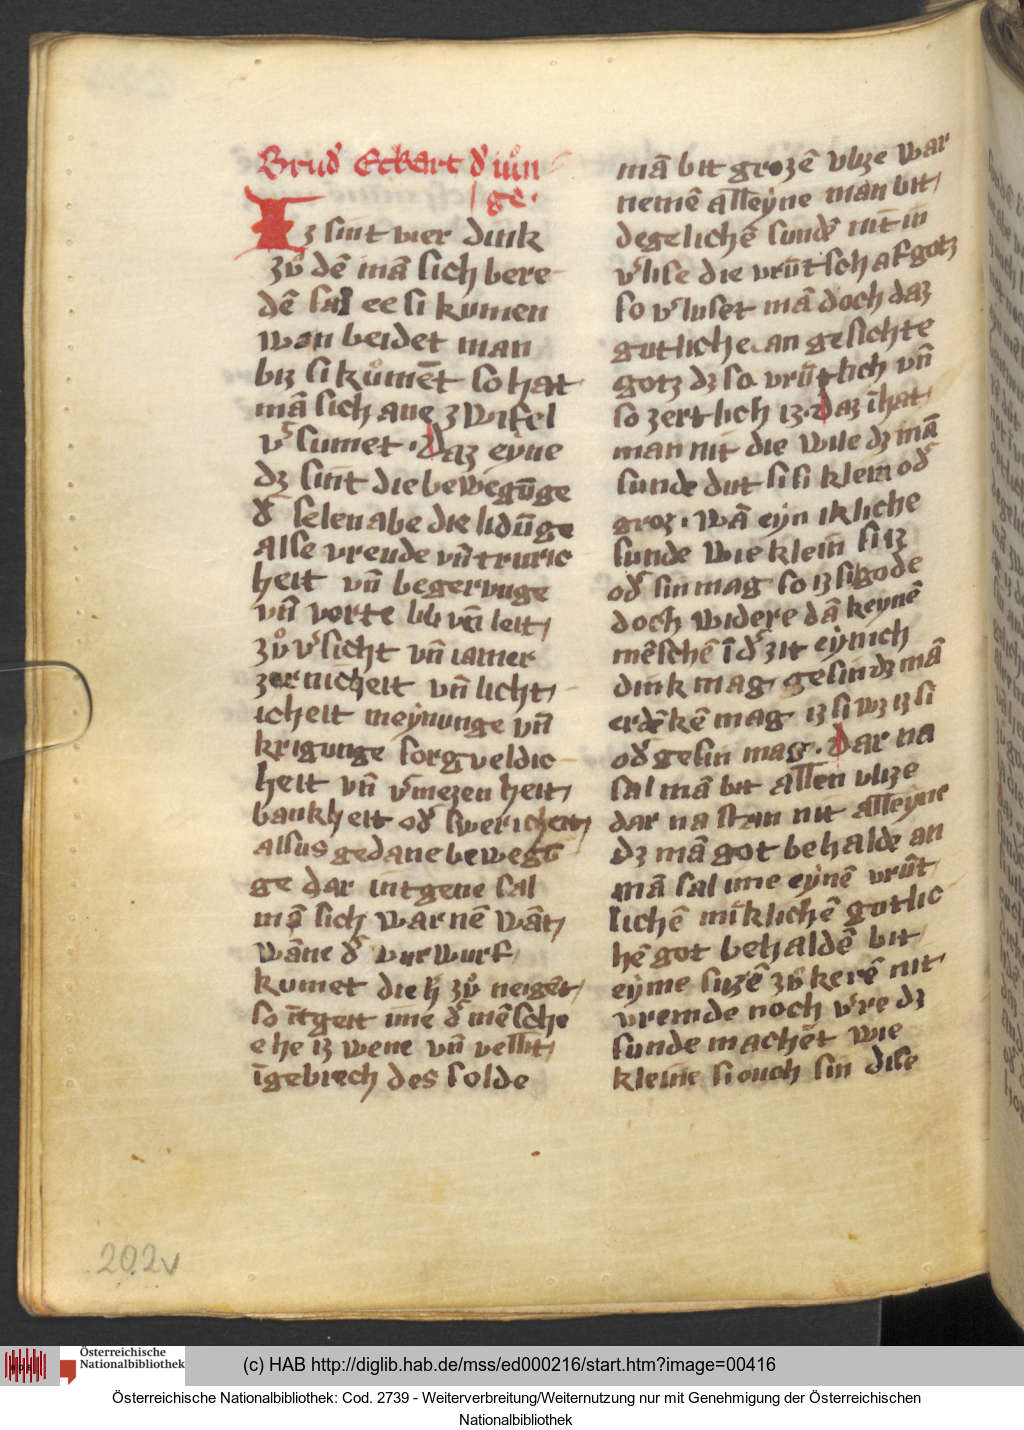 Brud̾ Eckart d̾ iu̍n
ge.
Iz sint vier dink
zů dē mā sich bere
dē sal ee si kumen
wan beidet man
biz si ku̍mēt so hat
mā sich aue zwifel
v̾sumet . Daz eyne
dz sint die bewegūge
d̾ selen abe die lidūge
alse vreude vn̄ truric
heit vn̄ begerunge
vn̄ vorte lib vn̄ leit
zů v̾sicht vn̄ iamer
zornicheit vn̄ licht
icheit meynunge vn̄
krigunge sorgueldic
heit vn̄ v̾mezen heit
bankheit od̾ swericheit
alsus gedane bewegū
ge dar intgene sal
mā sich warnē wāt
wāne d̾ vurwurf
kumet die h̾ zů neigēt
so ītgeit ime d̾ mēsche
ehe iz wene vn̄ vellit
īgebrech des solde
mā bit grozē vlize war
nemē alleyne man bit
degelichē sundē nit in
v̾lise die vrūtschaf gotz
so v̾luset mā doch daz
gutliche an gesichte
gotz dz so vrūtlich vn̄
so zertlich iz . Daz īhat
man nit die wile dz mā
sunde dut si si klein od̾
groz . wā eyn ikliche
sunde wie klein si iz
od̾ sin mag so iz si gode
doch widere dā keynē
mēschē ī d̾ zit eynich
dink mag gesin dz mā
erdēkē mag iz si wz iz si
od̾ gesin mag . Dar na
sal mā bit allen vlize
dar na stan nit alleyne
dz mā got behalde an
mā sal ime eynē vrūt
lichē miklichē gotlic
hē got behaldē bit
eyme suzē zů kerē nit
vremde noch v̾re dz
sunde machēt wie
kleine si ouch sin dise
202v
Österreichische
Nationalbibliothek
(c) HAB http://diglib.hab.de/mss/ed000216/start.htm?image=00416
Österreichische Nationalbibliothek: Cod. 2739 - Weiterverbreitung/Weiternutzung nur mit Genehmigung der Österreichischen
Nationalbibliothek